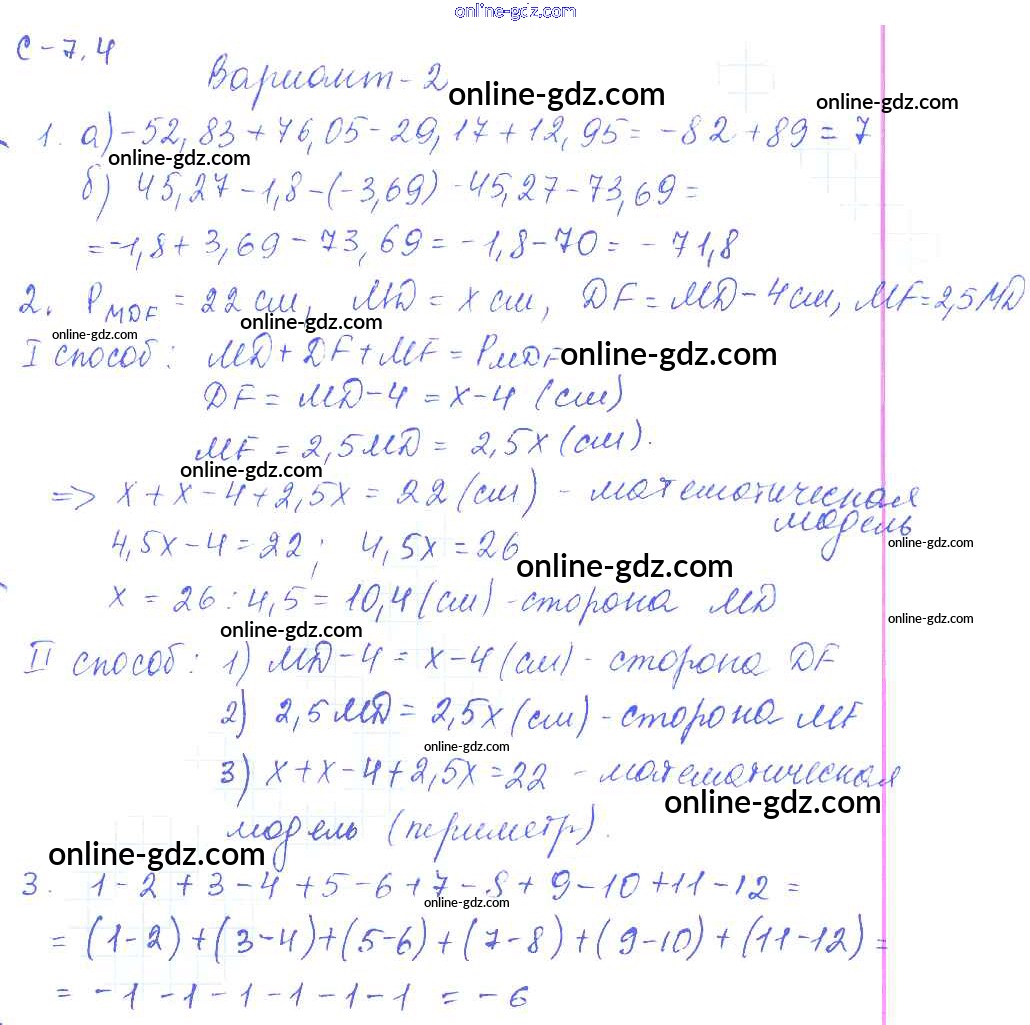 online-gdz.com
С-7.4
Вариант-2
online-gdz.com
online-gdz.com
1. а) -52,83 + 76,05 - 29,17 + 12,95 = -82 + 89 = 7
online-gdz.com
б) 45,27 - 1,8 - (-3,69) - 45,27 - 73,69 =
= -1,8 + 3,69 - 73,69 = -1,8 - 70 = -71,8
2. P MDF = 22 см, MD = x см, DF = MD - 4 см, MF = 2,5 MD
online-gdz.com
online-gdz.com
I способ: MD + DF + MF = P MDF
online-gdz.com
DF = MD - 4 = x - 4 (см)
MF = 2,5 MD = 2,5x (см).
online-gdz.com
=> x + x - 4 + 2,5x = 22 (см) - математическая
модель
online-gdz.com
4,5x - 4 = 22; 4,5x = 26
online-gdz.com
x = 26 : 4,5 = 10,4 (см) - сторона MD
online-gdz.com
online-gdz.com
II способ: 1) MD - 4 = x - 4 (см) - сторона DF
2) 2,5 MD = 2,5x (см) - сторона MF
online-gdz.com
3) x + x - 4 + 2,5x = 22 - математическая
online-gdz.com
модель (периметр).
online-gdz.com
3. 1 - 2 + 3 - 4 + 5 - 6 + 7 - 8 + 9 - 10 + 11 - 12 =
online-gdz.com
= (1-2) + (3-4) + (5-6) + (7-8) + (9-10) + (11-12) =
= -1 -1 -1 -1 -1 -1 = -6